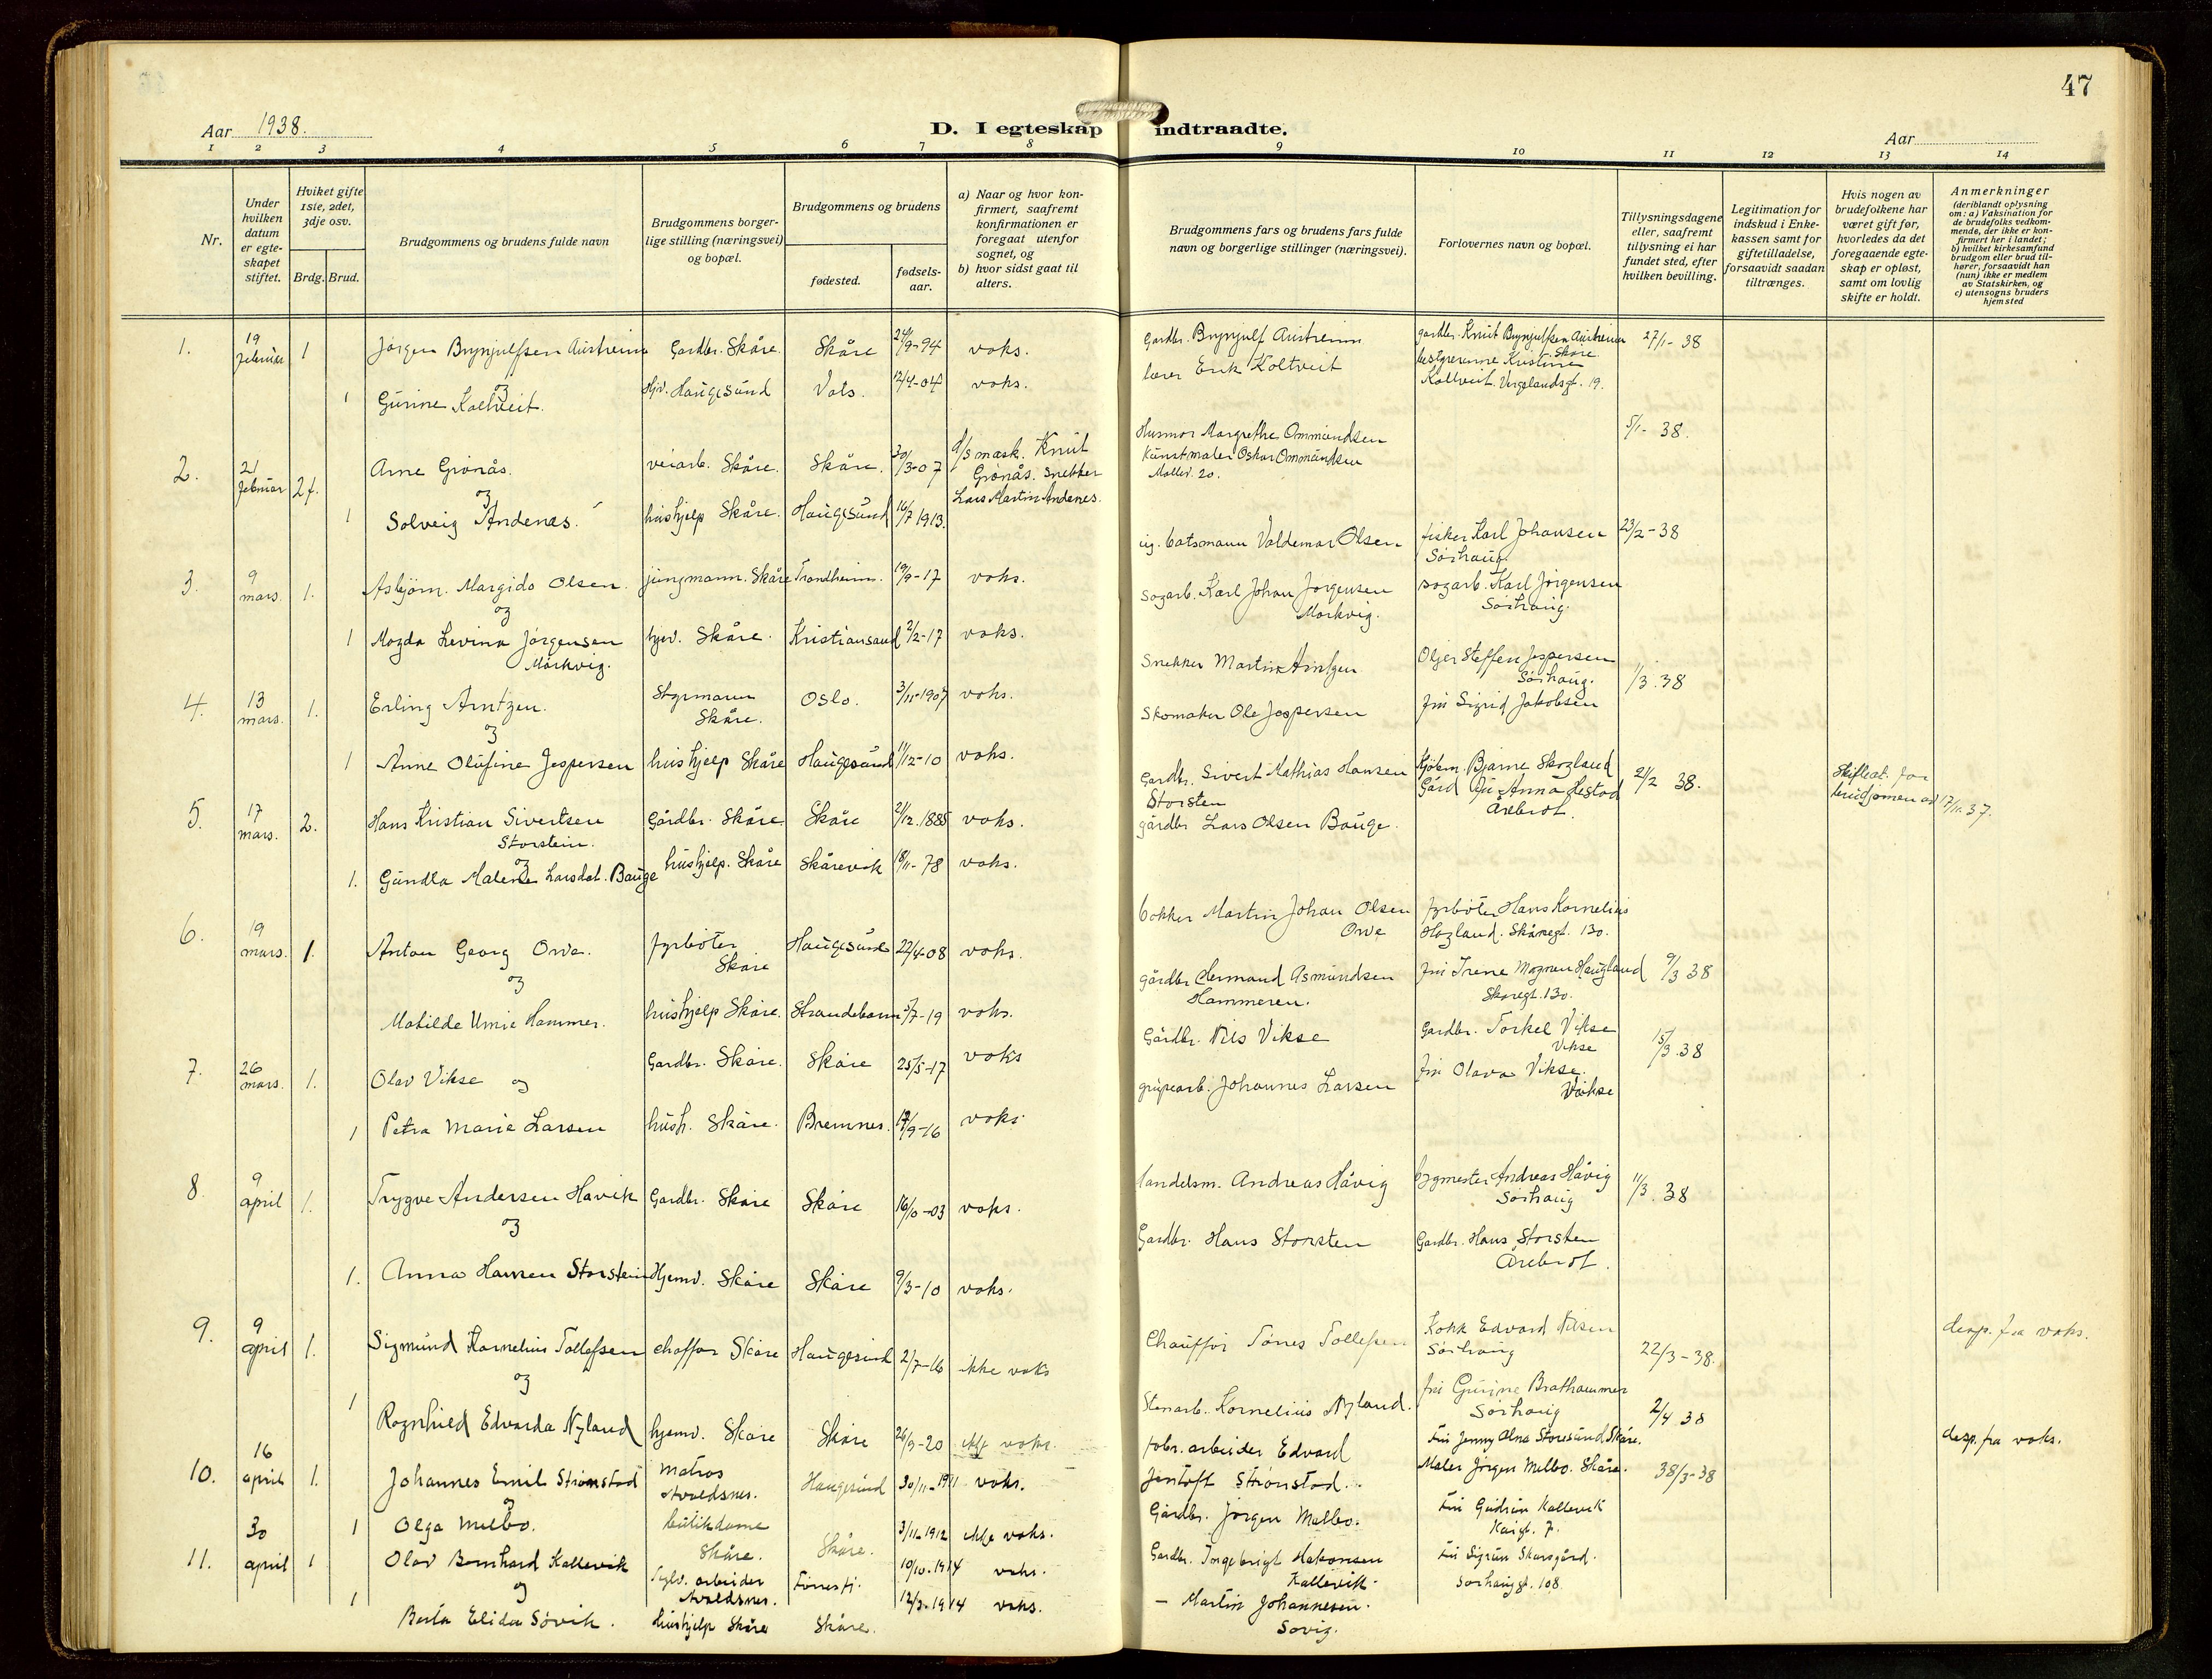 47
Aar 1938.
D. I egteskap indtraadte.
Aar
1 2 3 4 5 6 7 8 9 10 11 12 13 14
Nr.
Under
hvilken
datum
er egte-
skapet
stiftet.
Hvilket gifte
1ste, 2det,
3dje osv.
Brdg. Brud.
Brudgommens og brudens fulde navn
Brudgommens borger-
lige stilling (næringsvei)
og bopæl.
Brudgommens og brudens
fødested.
fødsels-
aar.
a) Naar og hvor kon-
firmert, saafremt
konfirmationen er
foregaat utenfor
sognet, og
b) hvor sidst gaat til
alters.
Brudgommens fars og brudens fars fulde
navn og borgerlige stillinger (næringsvei).
Forlovernes navn og bopæl.
Tillysningsdagene
eller, saafremt
tillysning ei har
fundet sted, efter
hvilken bevilling.
Legitimation for
indskud i Enke-
kassen samt for
giftetilladelse,
forsaavidt saadan
tiltrænges.
Hvis nogen av
brudefolkene har
været gift før,
hvorledes da det
foregaaende egte-
skap er opløst,
samt om lovlig
skifte er holdt.
Anmerkninger
(deriblandt oplysning
om: a) Vaksination for
de brudefolks vedkom-
mende, der ikke er kon-
firmert her i landet;
b) hvilket kirkesamfund
brudgom eller brud til-
hører, forsaavidt han
(hun) ikke er medlem
av Statskirken, og
c) utensogns bruders
hjemsted
1. 19 februar 1 Jørgen Brynjulfsen Austreim Gardbr. Skåre. Skåre 24/9-94 voks.
og
1 Gurine Koltveit. Hjv. Haugesund Vats. 12/4-04 voks.
Gardbr. Brynjulf Austreim
lærer Erik Koltveit
gardbr. Knut Brynjulfsen Austreim
Skåre.
Kristine
Koltveit. Vergelandsgt. 19.
27/1-38
2. 21 februar 2f. Arne Grønås. veiarb. Skåre. Skåre. 30/3-07
og
1 Solveig Andenes. hushjelp Skåre. Haugesund 16/7 1913.
d/s mask. Knut
Grønås. Snekker
Lars Martin Andenes.
Husmor Margrethe Ommundsen
Kunstmaler Oskar Ommundsen
Møllev. 20.
5/1-38.
3. 9 mars. 1. Asbjørn. Margido Olsen. jungmann. Skåre Trondheim. 19/9-17 voks.
og
1 Magda Levina Jørgensen hjev. Skåre. Kristiansand 2/2-17 voks.
Mørkvig.
ug. batsmann Valdemar Olsen
Sagarb. Karl Johan Jørgensen
Mørkvig.
fisker Karl Johansen
Sørhaug.
sagarb. Karl Jørgensen
Sørhaug.
23/2-38
4. 13 mars. 1. Erling Arntzen. Styrmann Skåre. Oslo. 3/11-1907 voks.
og
1 Anne Olufine Jespersen hushjelp Skåre Haugesund 11/12-10 voks.
Snekker Martin Arntzen
Skomaker Ole Jespersen
Steffen Jespersen
Sørhaug.
fru Sigrid Jakobsen
1/3.38
5. 17 mars. 2. Hans Kristian Sivertsen Gårdbr. Skåre Skåre 21/12.1885 voks.
Storstein.
og
1. Gundla Malene Larsdat. Bauge hushjelp. Skåre Skårevik 18/11-78 voks.
Gardbr. Sivert Mathias Hansen
Storsten
gårdbr Lars Olsen Bauge.
Kjøbm. Bjarne Skogland
Gård Anna Lestad
Årebrot.
21/2 38.
Skifteat. for
brudgomen av 17/11.37.
6. 19 mars. 1. Anton Georg Owe. fyrbøter Skåre Haugesund 22/4-08 voks.
og
Matilde Unie Hammer. hushjelp Skåre. Strandebarm 5/7-19 voks.
bøkker Martin Johan Olsen
Owe
gårdbr Hermand Asmundsen
Hammeren.
fyrbøter Hans Kornelius
Hogland. Skåregt. 130.
fru Irene Haugland
Skåregt. 130.
9/3 38
7. 26 mars. 1. Olav Vikse og Gardbr. Skåre. Skåre 25/5-17 voks
1 Petra Marie Larsen hush. Skåre. Bremnes. 12/9-16 voks.
Gårdbr. Nils Vikse
gruvearb. Johannes Larsen
Gardbr. Torkel Vikse
Vikse
fru Olava Vikse.
Vikse
15/3.38
8. 9 april 1. Trygve Andersen Havik Gardbr. Skåre Skåre 16/10-03 voks.
og
1. Anna Hansen Storstein Hjemv. Skåre Skåre 9/3-10 voks.
Handelsm. Andreas Håvig
Gardbr. Hans Storsten
bygmester Andreas Håvig
Sørhaug
Gardbr. Hans Storsten
Årebrot.
11/3.38
9. 9 april 1. Sigmund Kornelius Tollefsen chaffør Skåre Haugesund 2/7-16 ikke voks
og
1 Ragnhild Edvarda Nyland hjemv. Skåre Skåre 26/9-20 ikke voks.
Chauffør Tønes Tollefsen
Stenarb. Kornelius Nyland.
Kokk Edvard Nilsen
Sørhaug
fru Gurine Brathammer
Sørhaug
22/3-38.
2/4 38
desp. fra voks.
10. 16 april 1. Johannes Emil Strønstad Matros Avaldsnes. Haugesund 30/11-1911 voks.
og
1 Olga Melbo. butikdame Skåre. Skåre. 3/11-1912 ikke voks.
fabr. arbeider Edvard
Jentoft Strønstad.
Gårdbr. Jørgen Melbo.
Fru Jenny Olna Storesund Skåre.
Maler Jørgen Melbo. Skåre.
38/3-38
desp. fra voks.
11. 30 april 1 Olav Bernhard Kallevik arbeider Avaldsnes. Førresfj. 10/10-1914 voks.
og
1 Berta Elida Søvik. Hushjelp Skåre Skåre. 12/3-1914 voks.
Gardbr. Ingebrigt Hakonsen
Kallevik.
— Martin Johannesen.
Søvig.
Fru Gudrun Kallevik
Kaigt. 7.
Fru Sigrun Skarsgård.
Sørhauggt. 108.